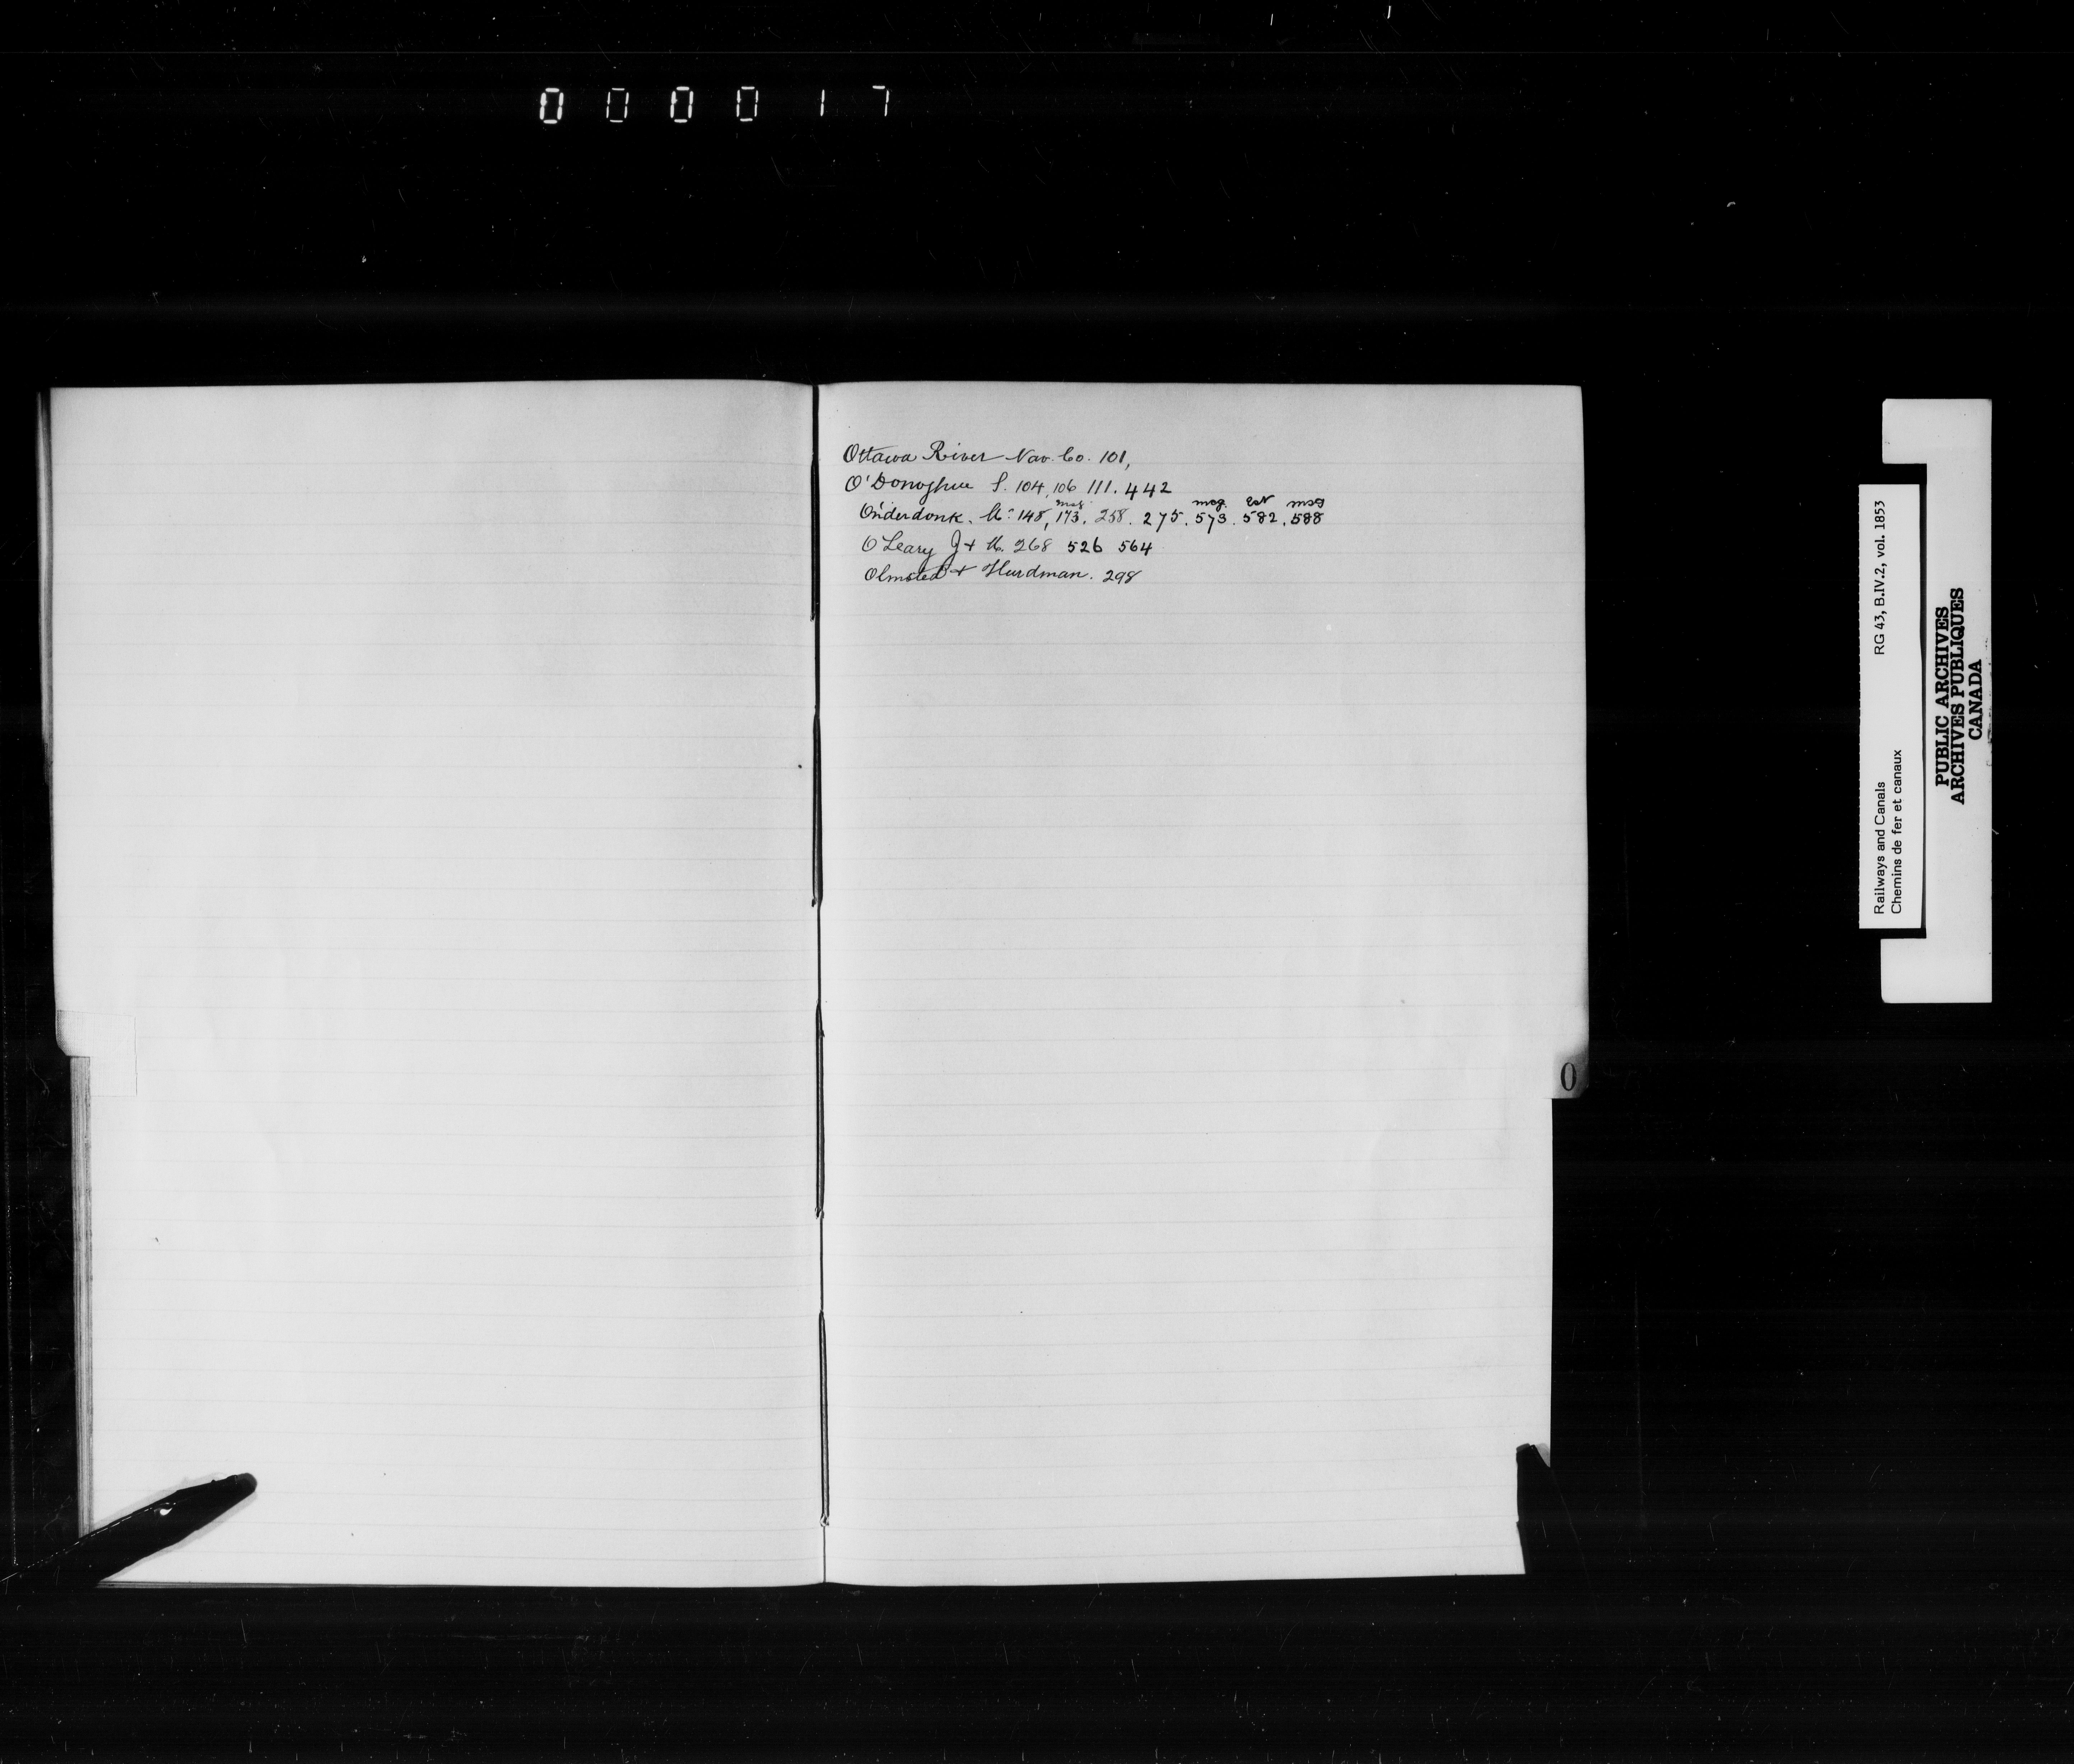 000017
Ottawa River Nav. Co. 101,
O'Donoghue S. 104, 106 111. 442
msg. msg. Est msg
Onderdonk. 148, 173. 258. 275. 573. 582. 588
O'Leary J & M. 268 526 564
Olmsted & Hurdman. 298
O
Railways and Canals RG 43, B.IV.2, vol. 1853
Chemins de fer et canaux
PUBLIC ARCHIVES
ARCHIVES PUBLIQUES
CANADA